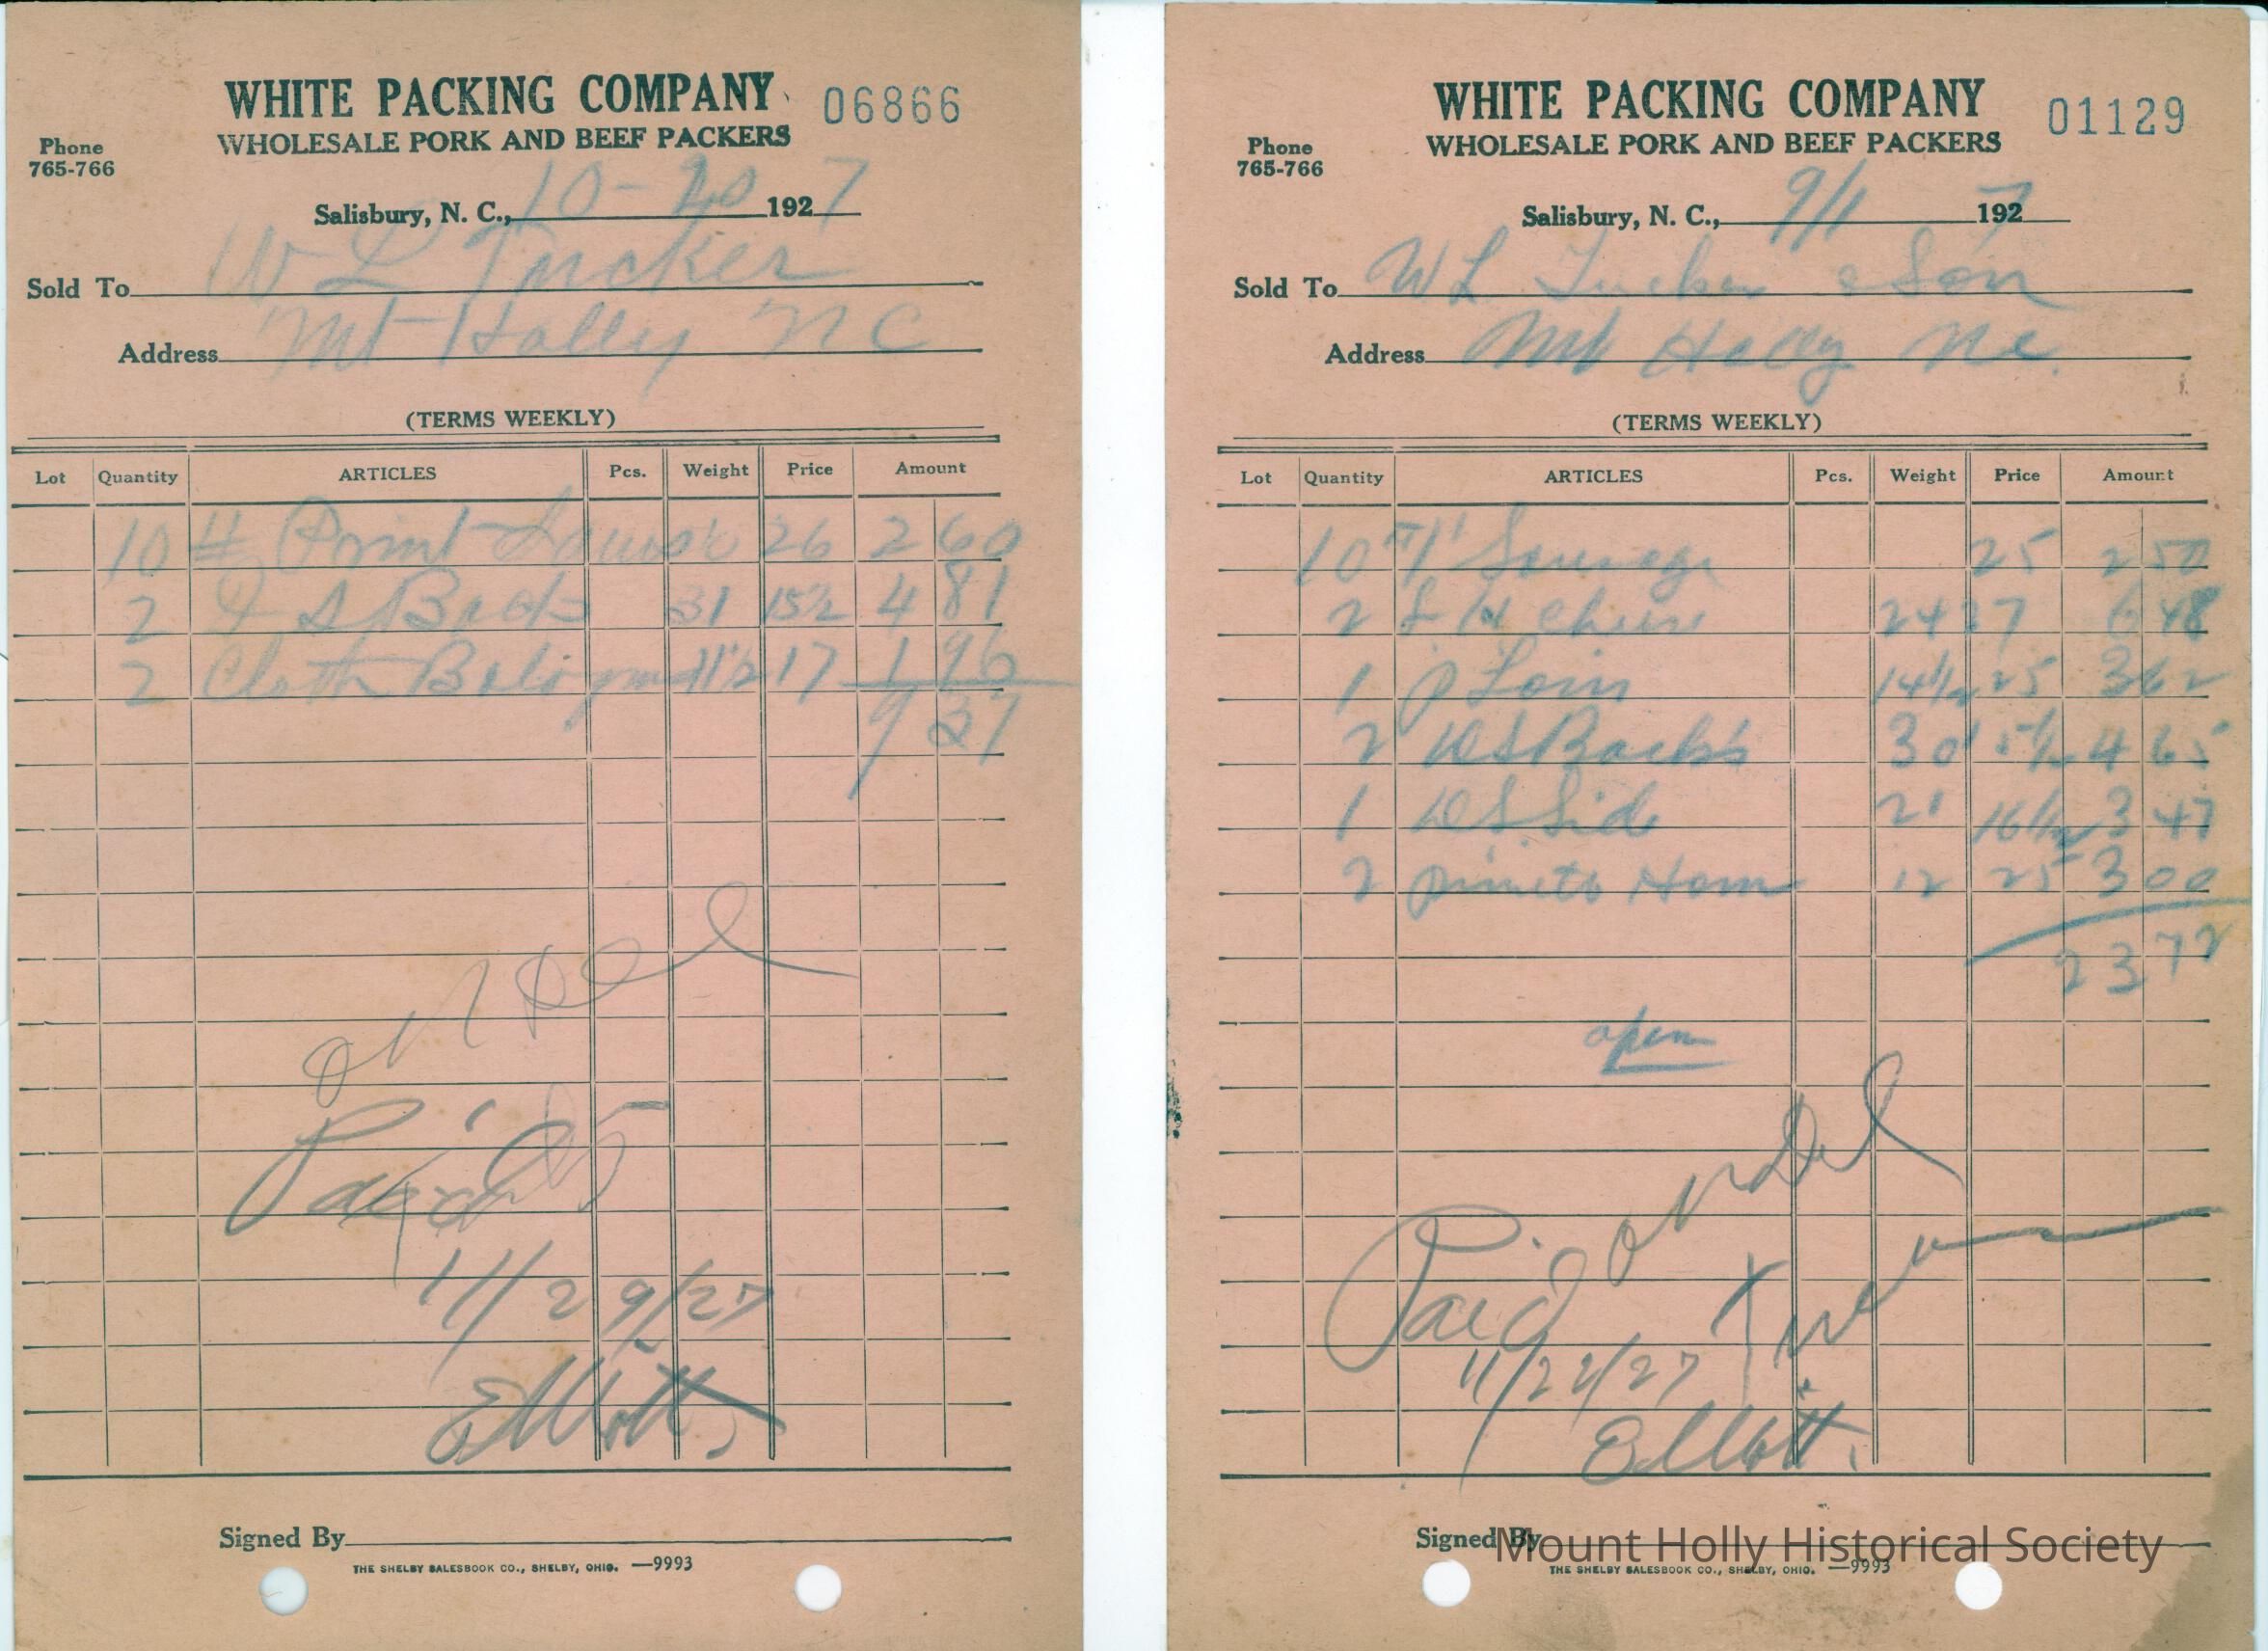 WHITE PACKING COMPANY 06866
WHOLESALE PORK AND BEEF PACKERS
Phone
765-766
Salisbury, N. C., 10-20 1927
Sold To W L Tucker
Address Mt Holly NC
(TERMS WEEKLY)
Lot Quantity ARTICLES Pcs. Weight Price Amount
10 # 26 2 60
2 D S Backs 31 15½ 4 81
2 Cloth Bologna 11½ 17 1 96
9 37
on Del
Paid
11/29/27
Elliott
Signed By
THE SHELBY SALESBOOK CO., SHELBY, OHIO. —9993
WHITE PACKING COMPANY 01129
WHOLESALE PORK AND BEEF PACKERS
Phone
765-766
Salisbury, N. C., 9/1 1927
Sold To W L Tucker & Son
Address Mt Holly NC.
(TERMS WEEKLY)
Lot Quantity ARTICLES Pcs. Weight Price Amount
10 Sausage 25 2 50
2 L H Cheese 24 27 6 48
1 P Loin 14½ 25 3 62
2 DS Backs 30 15½ 4 65
1 DS Side 21 16½ 3 47
2 Pimeto Ham 12 25 3 00
23 72
open
on Del
Paid
11/22/27
Elliott
Signed By
THE SHELBY SALESBOOK CO., SHELBY, OHIO. —9993
Mount Holly Historical Society